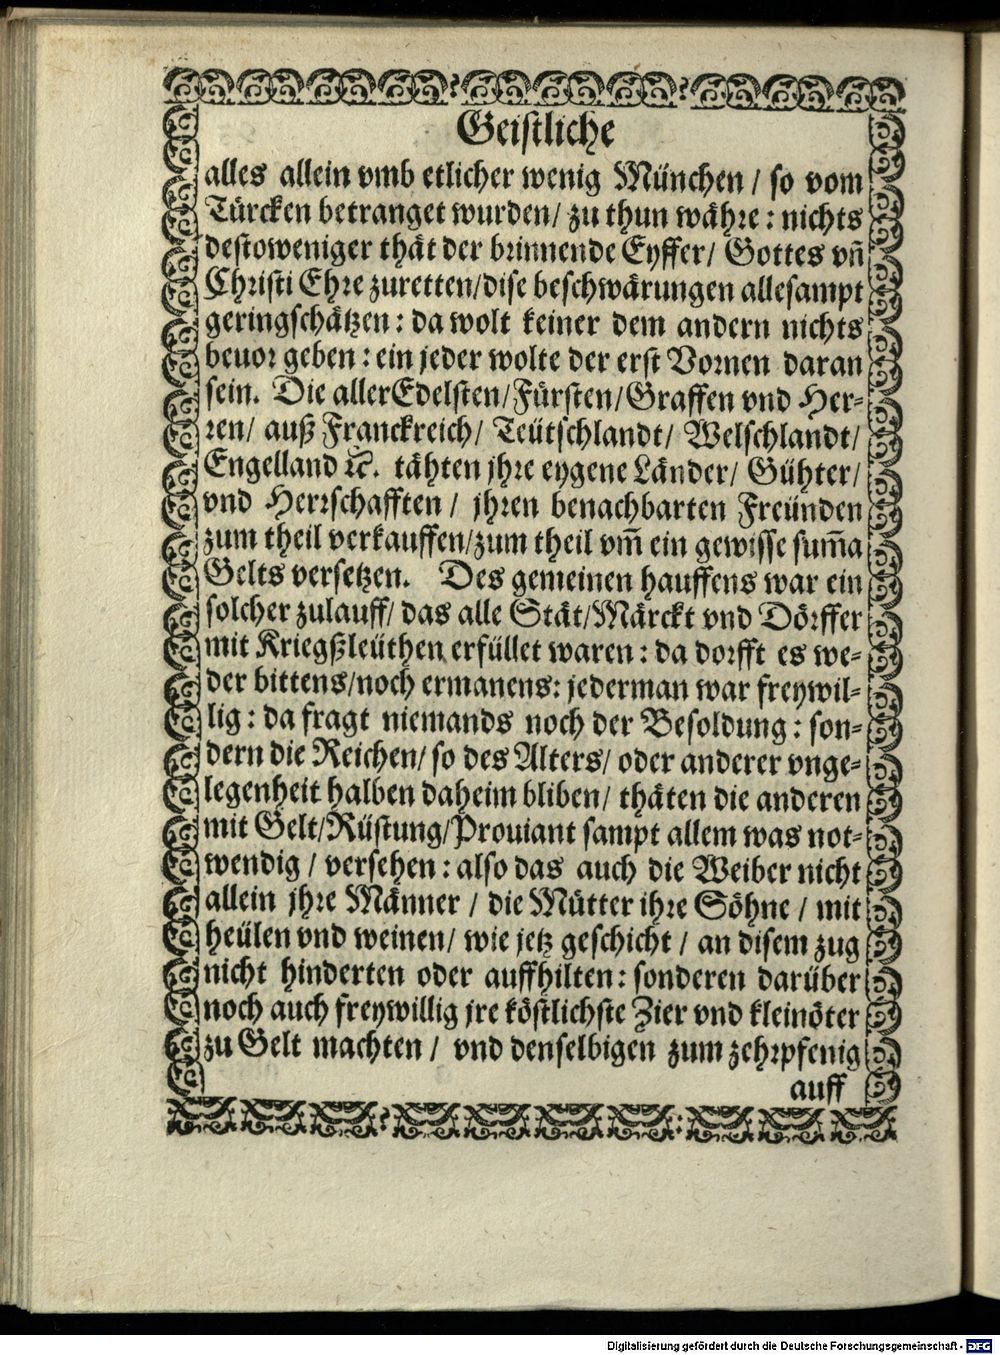 Geistliche
alles allein vmb etlicher wenig München / so vom
Türcken betranget wurden / zu thun währe : nichts
destoweniger thät der brinnende Eyffer / Gottes vñ
Christi Ehre zuretten / dise beschwärungen allesampt
geringschätzen : da wolt keiner dem andern nichts
beuor geben : ein jeder wolte der erst Vornen daran
sein. Die allerEdelsten / Fürsten / Graffen vnd Her-
ren / auß Franckreich / Teütschlandt / Welschlandt /
Engelland ꝛc. tähten jhre eygene Länder / Gühter /
vnd Herrschafften / jhren benachbarten Freünden
zum theil verkauffen / zum theil vm̃ ein gewisse sum̃a
Gelts versetzen. Des gemeinen hauffens war ein
solcher zulauff / das alle Stät / Märckt vnd Dörffer
mit Kriegßleüthen erfüllet waren : da dorfft es we-
der bittens / noch ermanens : jederman war freywil-
lig : da fragt niemands noch der Besoldung : son-
dern die Reichen / so des Alters / oder anderer vnge-
legenheit halben daheim bliben / thäten die anderen
mit Gelt / Rüstung / Prouiant sampt allem was not-
wendig / versehen : also das auch die Weiber nicht
allein jhre Männer / die Mütter ihre Söhne / mit
heülen vnd weinen / wie jetz geschicht / an disem zug
nicht hinderten oder auffhilten : sonderen darüber
noch auch freywillig jre köstlichste Zier vnd kleinöter
zu Gelt machten / vnd denselbigen zum zehrpfenig
auff
Digitalisierung gefördert durch die Deutsche Forschungsgemeinschaft - DFG